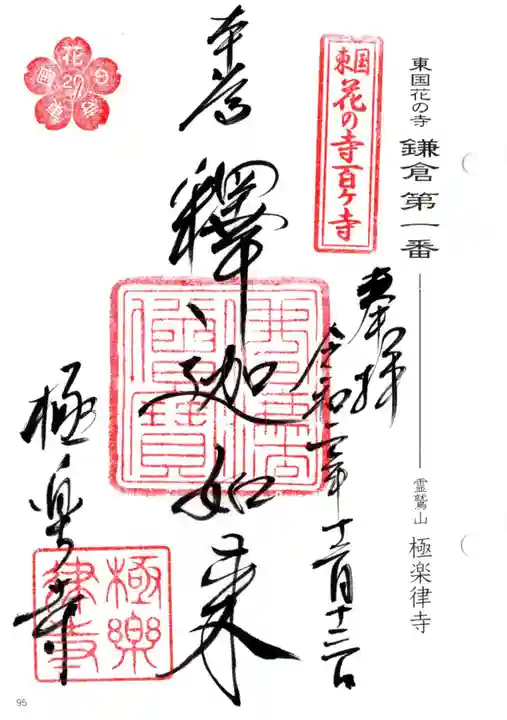 東国花の寺 鎌倉第一番
霊鷲山 極楽律寺
東国
花の寺百ヶ寺
奉拝
令和二年十二月十三日
本尊
釋迦如来
極楽寺
極樂
律寺
花
20
95